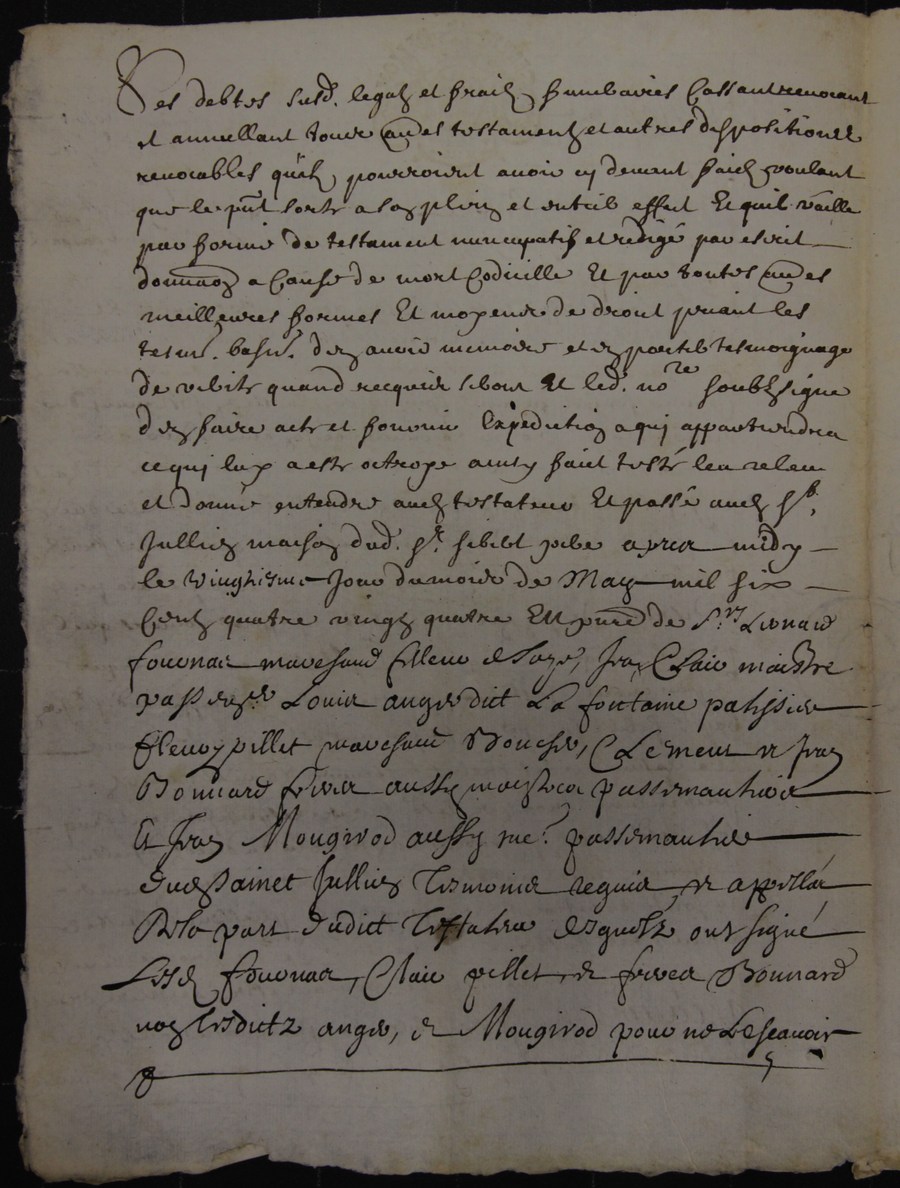 Ses debtes susd. legatz et fraictz funeraires Cassant revocant
et annullant tous au.es testamentz et autres dispositiones
revocables qu'il pourroient avoir cy devant faict voulant
que le pnt sorte a son plein et entier effect Et quil vaille
par forme de testament nuncupatif et redigé par escrit
donnaon a Cause de mort Codicille Et par toutes au.es
meilleures formes Et moyens de droit priant les
tesm. basn. den avoir memoire et en porter tesmoignage
de verité quand requis seront Et led. nore soubzsigné
den faire acte et fournir Expedition a qui appartiendra
ce qui luy a esté octroyé ainsy faict testé leu releu
et donné entendre aud testateur Et passé aud St.
Jullien maison dud. Sr. sibilet apres midy
le Vingtiesme Jour du mois de May mil six
Centz quatre vingtz quatre En pnce de Srs Leonard
fournas marchand filleur de soye, fran Clair maistre
passem.er Louis anger dit La fontaine patissier
fleury pillet marchand Boucher, Clement et fran
Bonnard freres aussy maistres passemantiers
Et fran Mougirod aussy me. passemantier
dud Sainct Jullien Tesmoins requis et appellés
De la part dudict Testateur desquelz ont signé
Lesd fournas, Clair pillet, et freres Bonnard
non lesdictz anger, et Mougirod pour ne Le scavoir